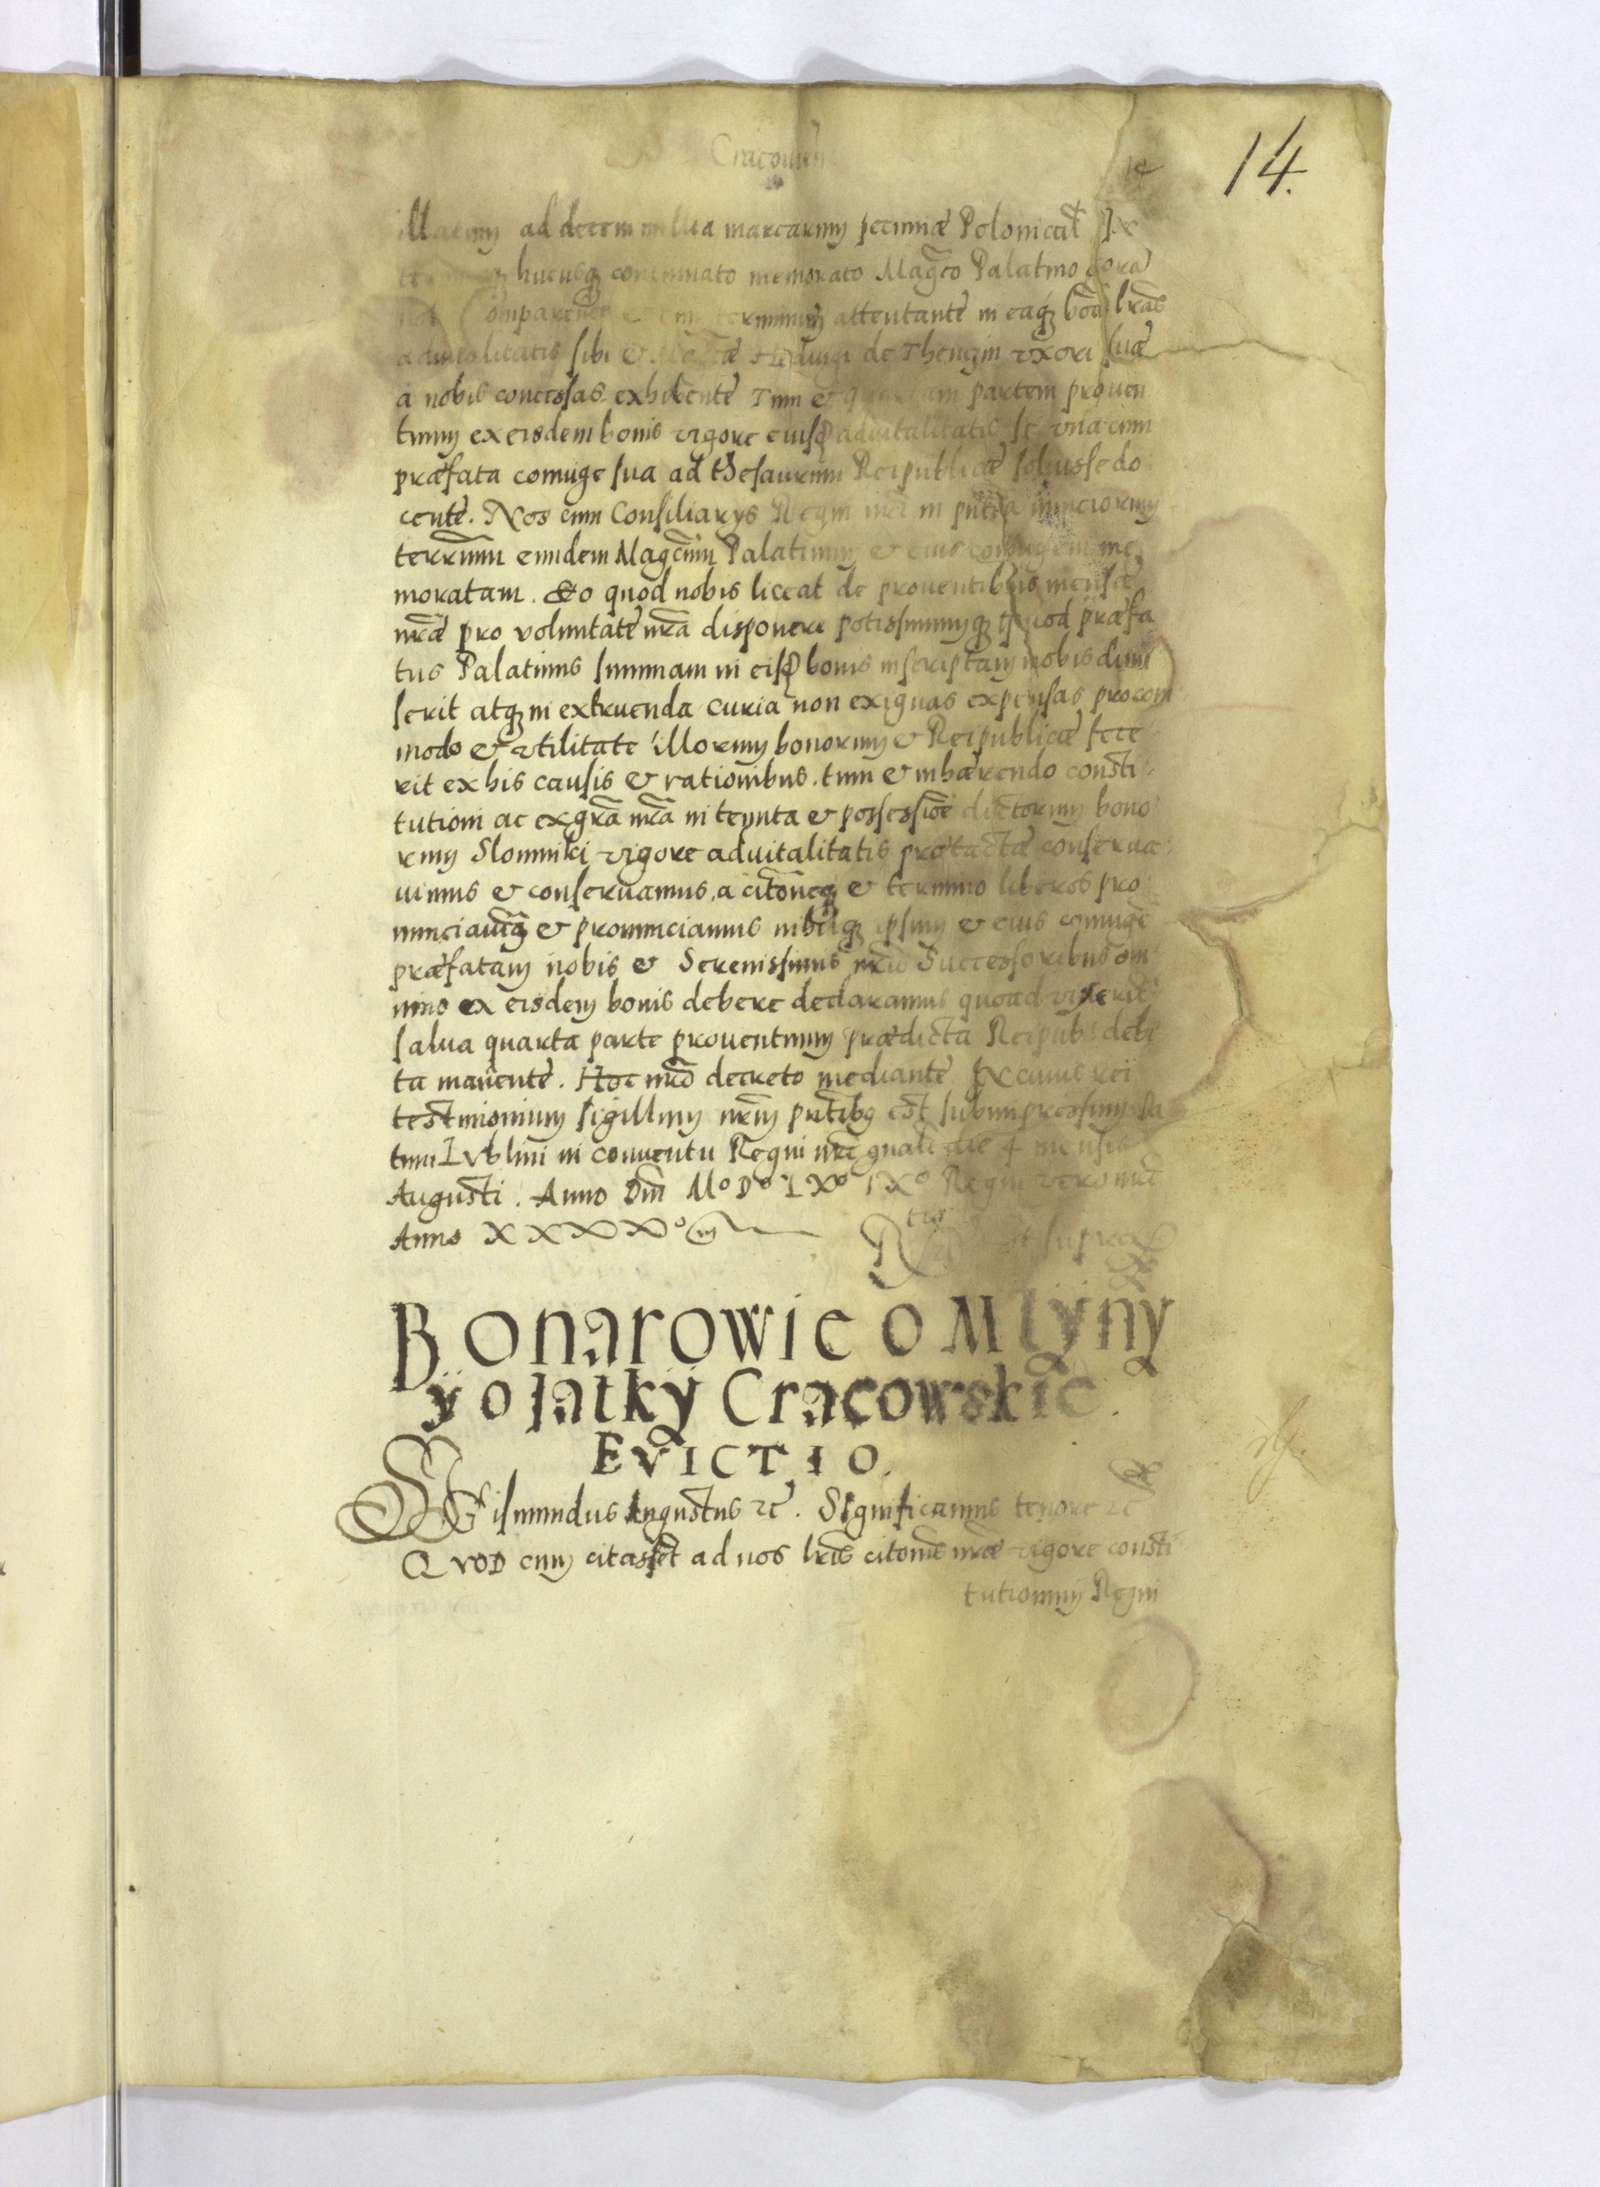 Cracovien
14.
illarum ad decem millia marcarum pecuniæ Polonical Ex
hucusq continuato memorato Magco Palatino cora
comparente terminum attentante in eaq bona lras
aduitalitatis sibi & de Thenczin vxori suæ
a nobis concessas exhibente Tum & quartam partem prouen
tuum ex eisdem bonis vigore eiusd aduitalitatis se vna cum
præfata coniuge sua ad thesaurum Reipublicæ soluisse do
cente. Nos cum Consiliarys Regni nri in pntia nunciorum
terrarum eundem Magcum Palatinum & eius coniugem me
moratam. Eo quod nobis liceat de prouentibus mensæ
nræ pro voluntate nra disponere potissimumq quod præfa
tus Palatinus summam in eisd bonis inscriptam nobis dimi
serit atq in extruenda curia non exiguas expensas pro com
modo & vtilitate illorum bonorum & Reipublicæ fece
rit ex his causis & rationibus. tum & inhærendo consti
tutioni ac ex gra nra in tenuta & possessioe dictorum bono
rum Slomniki vigore aduitalitatis prætactæ conserua
uimus & conseruamus, a citoneq & termino liberos pro
nunciauimq & pronunciamus nihilq ipsum & eius coniuge
præfatam nobis & Serenissimis nris Successoribus om
nino ex eisdem bonis debere declaramus quoad vixerit
salua quarta parte prouentuum prædicta Reipub: debi
ta manente. Hoc nro decreto mediante Ex cuius rei
testimonium sigillum nrum pntibq est subimpressum Da
tum Lublini in conuentu Regni nri gnali die 4 mensis
Augusti. Anno Dni Mo Do LXo IXo Regni vero nri
Anno XXXXo
vt supra
Bonarowic o Mlyny
y o Jatky Cracowskie
EVICTIO.
Sigismundus Augustus zc. Significamus tenore zc
QVOD cum citasset ad nos lris citonis nræ vigore consti
tutionum Regni